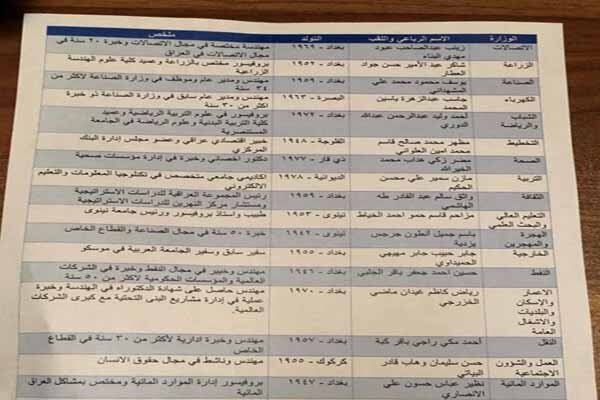 الوزارة الاسم الرباعي واللقب التولد ملخص
الاتصالات زينب عبدالصاحب عبود بغداد - ١٩٦٩ مهندسة مختصة في مجال الاتصالات وخبرة ٢٠ سنة في
مهدي البناء أعمال الاتصالات في العراق
الزراعة شاكر عبد الأمير حسن جواد بغداد - ١٩٥٢ بروفيسور مختص بالزراعة وعميد كلية علوم الهندسة
العطار الزراعية
الصناعة يوسف محمود محمد علي بغداد - ١٩٥٩ مهندس ومدير عام وموظف في وزارة الصناعة لأكثر من
المشهداني ٣٤ سنة
الكهرباء جاسب عبدالزهرة ياسين البصرة - ١٩٦٣ مهندس ومدير عام سابق في وزارة الصناعة ذو خبرة
المحمد اكثر من ٣٠ سنة
الشباب أحمد وليد عبدالرحمن عبدالله بغداد - ١٩٧٢ بروفيسور في علوم التربية الرياضية وعميد
والرياضة الدوري كلية التربية البدنية وعلوم الرياضة في الجامعة
المستنصرية
التخطيط مظهر محمد صالح قاسم الفلوجة - ١٩٤٨ خبير اقتصادي عراقي وعضو مجلس إدارة البنك
محمد امين العلواني المركزي
الصحة مضر زكي عذاب محمد ذي قار - ١٩٧٧ دكتور أخصائي وخبرة في إدارة مؤسسات صحية
الخيرالله
التربية مازن سمير علي محسن الديوانية - ١٩٧٨ اكاديمي جامعي متخصص في تكنلوجيا المعلومات والتعليم
الحكيم الالكتروني
الثقافة واثق سالم عبد القادر طه بغداد - ١٩٥٩ رئيس المجموعة العراقية للدراسات الاستراتيجية
الهاشمي ومستشار مركز النهرين للدراسات الاستراتيجية
التعليم العالي مزاحم قاسم حمو احمد الخياط نينوى - ١٩٥٣ طبيب واستاذ بروفيسور ورئيس جامعة نينوى
والبحث العلمي
الهجرة باسم جميل أنطون جرجس نينوى - خبرة ٥٠ سنة في مجال الصناعة والقطاع الخاص
والمهجرين يزدية
الخارجية جابر حبيب جابر مهيهي بغداد - ١٩٥٥ سفير سابق وسفير الجامعة العربية في موسكو
الحميداوي
النفط حسين احمد جعفر باقر الجلبي بغداد - ١٩٤٦ مهندس وخبير في مجال النفط وخبرة في الشركات
العالمية والمؤسسات الحكومية لاكثر من ٥٠ سنة
الاعمار رياض كاظم غيدان ماضي بغداد - ١٩٧٠ مهندس حاصل على شهادة الدكتوراه في الهندسة وخبرة
والإسكان الخزرجي عملية في إدارة مشاريع البنى التحتية مع كبرى الشركات
والبلديات العالمية.
والاشغال
العامة
النقل أحمد مكي راجي باقر كبة بغداد - ١٩٥٧ مهندس وخبرة إدارية لأكثر من ٣٠ سنة في القطاع
الخاص
العمل والشؤون حسن سليمان وهاب قادر كركوك - ١٩٥٥ مهندس وناشط في مجال حقوق الانسان
الاجتماعية البياتي
الموارد المائية نظير عباس حسون علي بغداد - ١٩٤٧ بروفيسور إدارة الموارد المائية ومختص بمشاكل العراق
الانصاري المائية